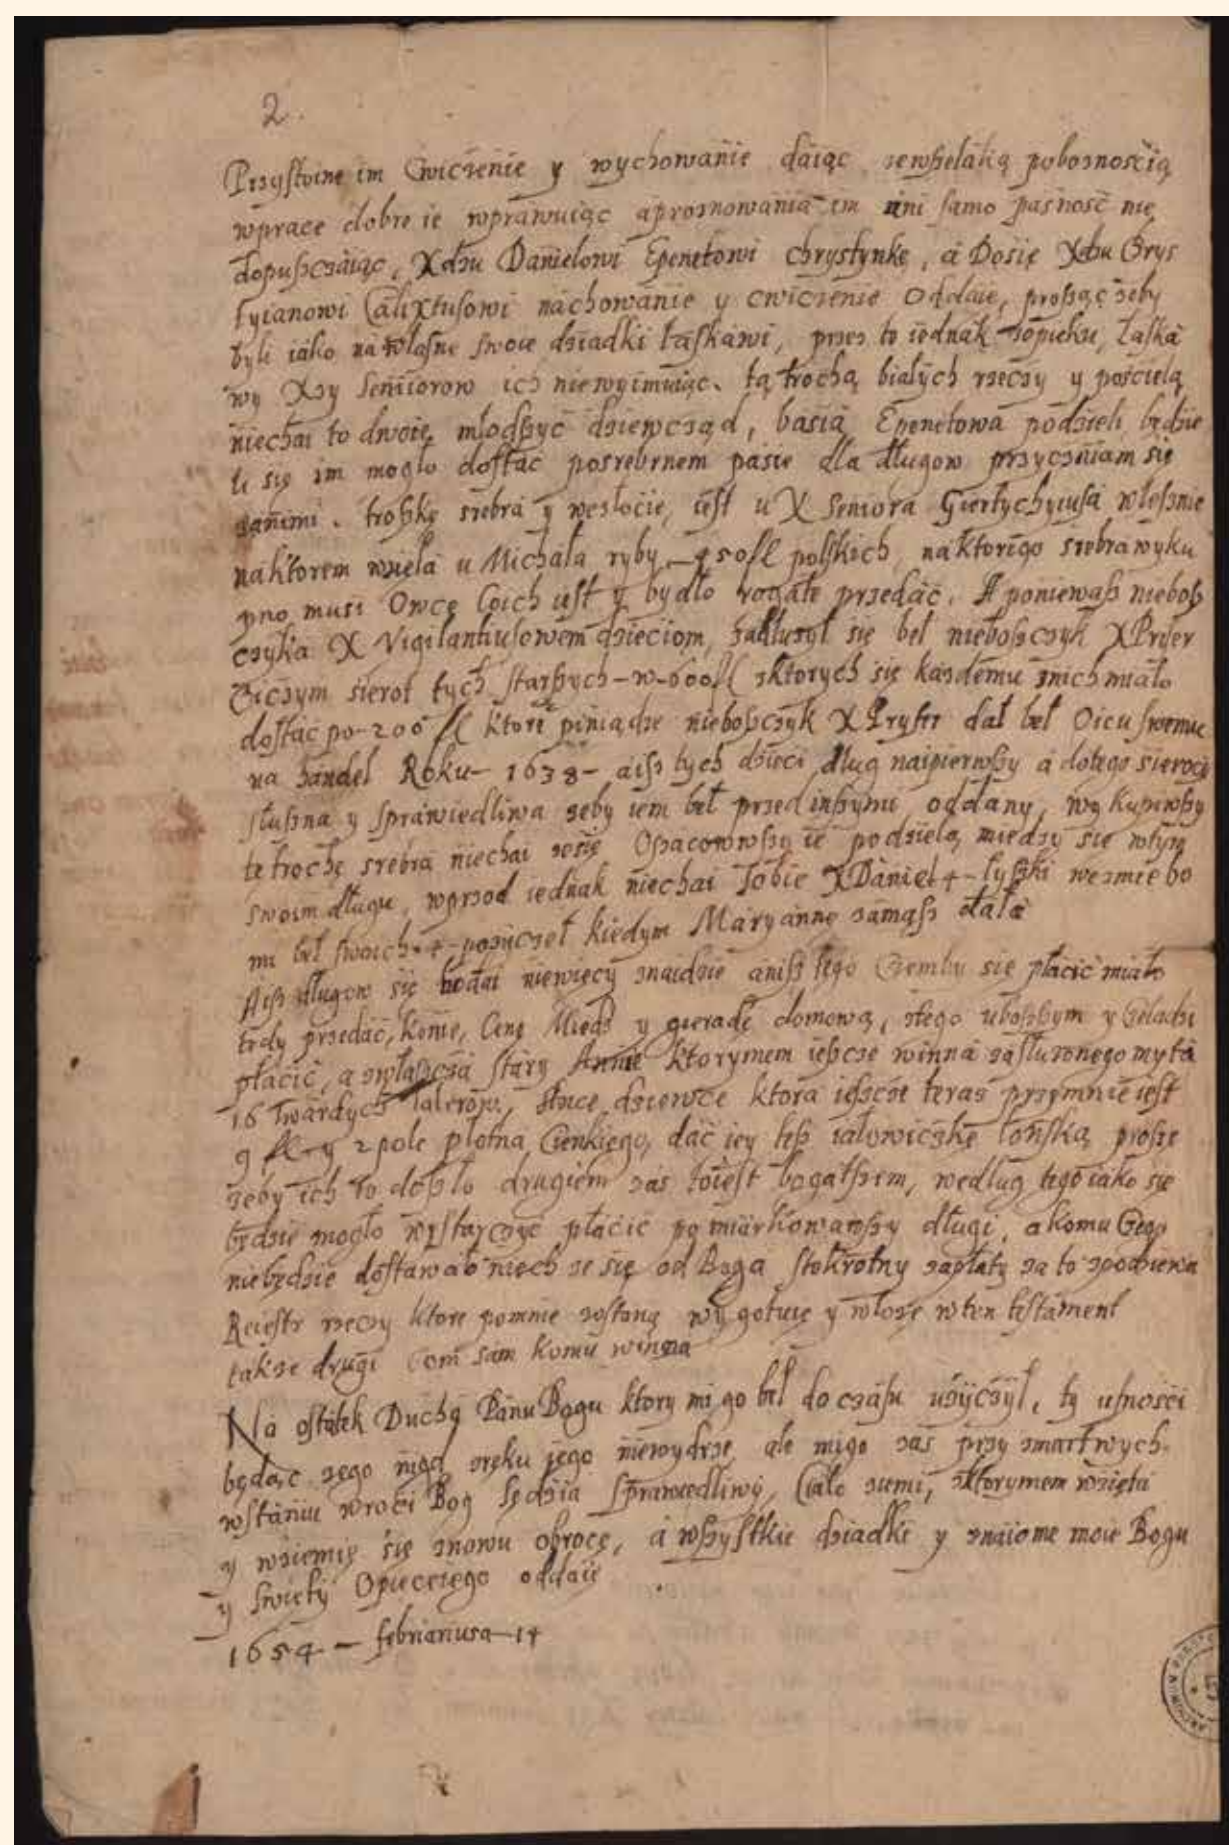 2.
Przystoine im Cwiczenie y wychowanie daiąc zewszelaką poboznoscią
wprace dobre ie wprawuiąc aproznowania im ani samo pasnosc nie
dopusczaiąc, Xdzu Danielowi Epenetowi chrystynkę, a Dosię Xdzu Crys
tyianowi Calixtusowi nachowanie y cwiczenie oddaie, prosząc zeby
byli iako na własne swoie dziadki łaskawi, przez to iednak zopieku, łaska
wy Xzy Seniorow ich niewyimuiąc. tą trochą białych rzeczy y poscielą
niechai to dwoie młodszyc dziewcząd, basia Epenetowa podzieli będzie
li się im mogło dostac posrebrnem pasie dla długow przyczniam się
zanimi. troszkę srebra y wezłocie, iest u X Seniora Giertychyiusa wlesznie
naktorem wzięła u Michała ryby 450 fl polskich, naktorego srebra wyku
pno musi Owce Coich iest y bydło rogate przedac. A poniewasz niebosz
czyka X Vigilantiusowem dzieciom, zadłuzył się beł nieboszczyk X Pryter
Oiczym sierot tych starszych – w – 600 fl zktorych się kazdemu znich miało
dostac po – 200 fl ktore piniądze nieboszczyk X Pryter dał beł Oicu swemu
na handel Roku – 1638 – aisz tych dzieci dług naipierwszy a dotego sierocy
słuszna y sprawiedliwa zeby iem beł przed inszymi oddany, wykupiwszy
te trochę srebra niechai zesię Oszacowawszy ie podzielą miedzy się wtym
swoim długu, wprzod iednak niechai Tobie X Daniel 4 – łyszki wezmie bo
mi beł swoich 4 – pozyczeł kiedym Maryannę zamąsz dała
Aisz długow się bodai niewięcy znaidzie anisz tego Czembu się płacic miało
tedy przedac, konie, Cenę Miedz y gieradę domową, stego uboszszym y Czeladzi
płacic, a zwłaszcza stary Annie ktorymem ieszcze winna zasłuzonego myta
16 Twardych Talerow, dziewce ktora ieszcze teraz przymnie iest
9 fl – y 2 pole płotna Cienkiego, dac iey tesz iałowiczkę łonską, proszę
zeby ich to doszło drugiem zas toiest bogatszem, wedlug tego iako się
będzie mogło wystarczyc płacic pomiarkowawszy długi, a komu Czego
niebędzie dostawało niech ze się od Boga stokrotny zapłaty za to spodziewa
Reiestr rzeczy ktore pomnie zostaną wygotuię y włozę wten testament
takze drugi Com sam komu winna
Na ostatek Duchą Panu Bogu ktory mi go beł do czasu uzyczył, ty ufnosci
będąc zego nigd zręku jego niewydrze ale migo zas przy zmartwych
wstaniu wroci Bog sędzia sprawiedliwy, Ciało zumi, zktorymem wzięta
y wziemię się znowu obrocę, a wszystkie dziadki y znaiome moie Bogu
y swięty Opiece iego oddaię
1654 – febriariusa – 14